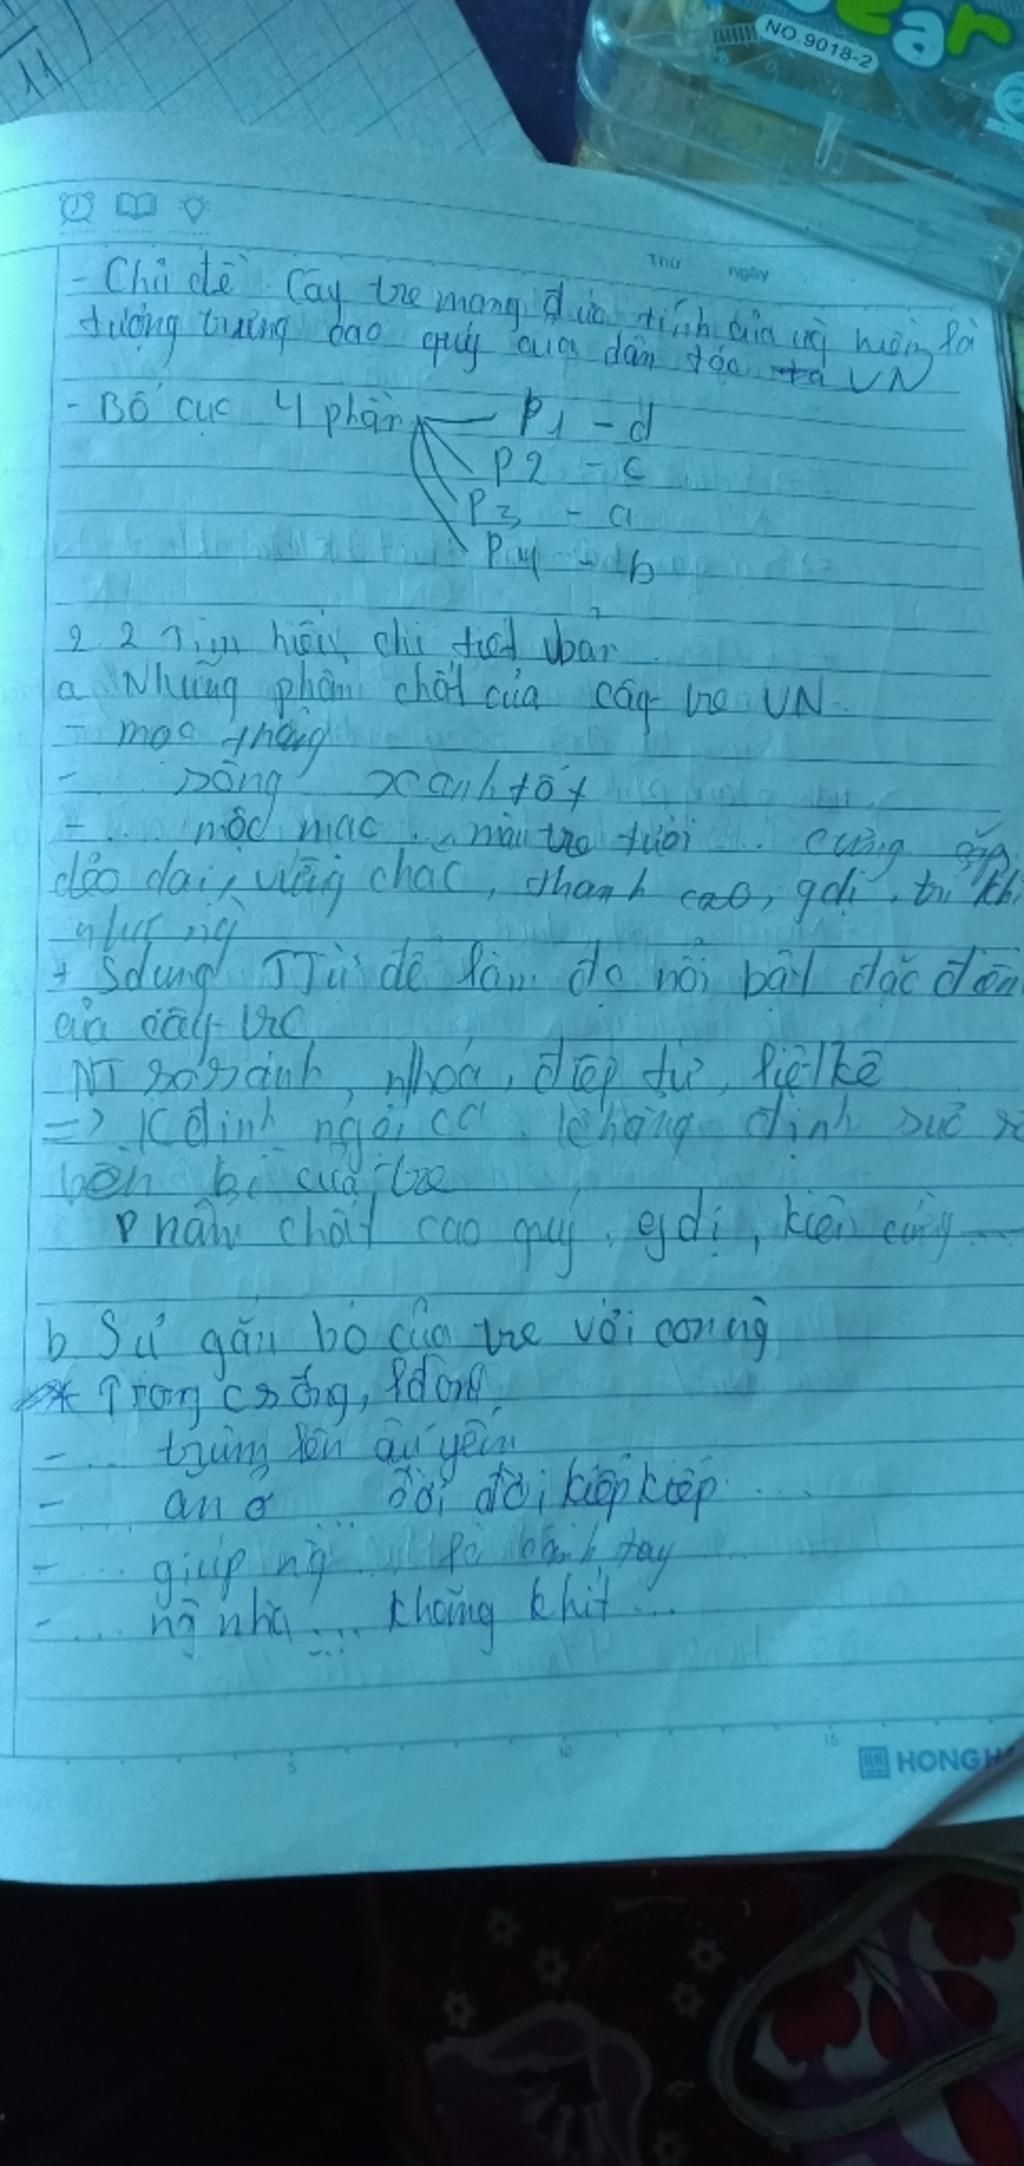 11
ear
NO.9018-2
Thứ ngày
- Chủ đề: Cây tre mang đức tính của ng hiền là
tượng trưng cao quý của dân tộc VN
- Bố cục 4 phần P1 - d
P2 - c
P3 - a
P4 - b
2. 2 Tìm hiểu chi tiết vbản
a Những phẩm chất của cây tre VN
- mọc thẳng
- sống xanh tốt
- ... mộc mạc ... màu tre tươi ... cứng cáp
dẻo dai, vững chắc, thanh cao, gdị, trí khí
như ng
+ Sdụng TTừ để làm nổi bật đặc điểm
của cây tre
NT so sánh, nhoá, điệp từ, liệt kê
=> Kđịnh ngợi ca khẳng định sức
bền bỉ của tre
Phẩm chất cao quý, gdị, kiên cường ...
b Sự gắn bó của tre với con ng
* Trong csống, lđộng
- ... trùm lên âu yếm
- ăn ở ... đời đời, kiếp kiếp ...
- ... giúp ng ... là cánh tay
- ... ng nhà ... khăng khít ...
5 10 15
HONGH